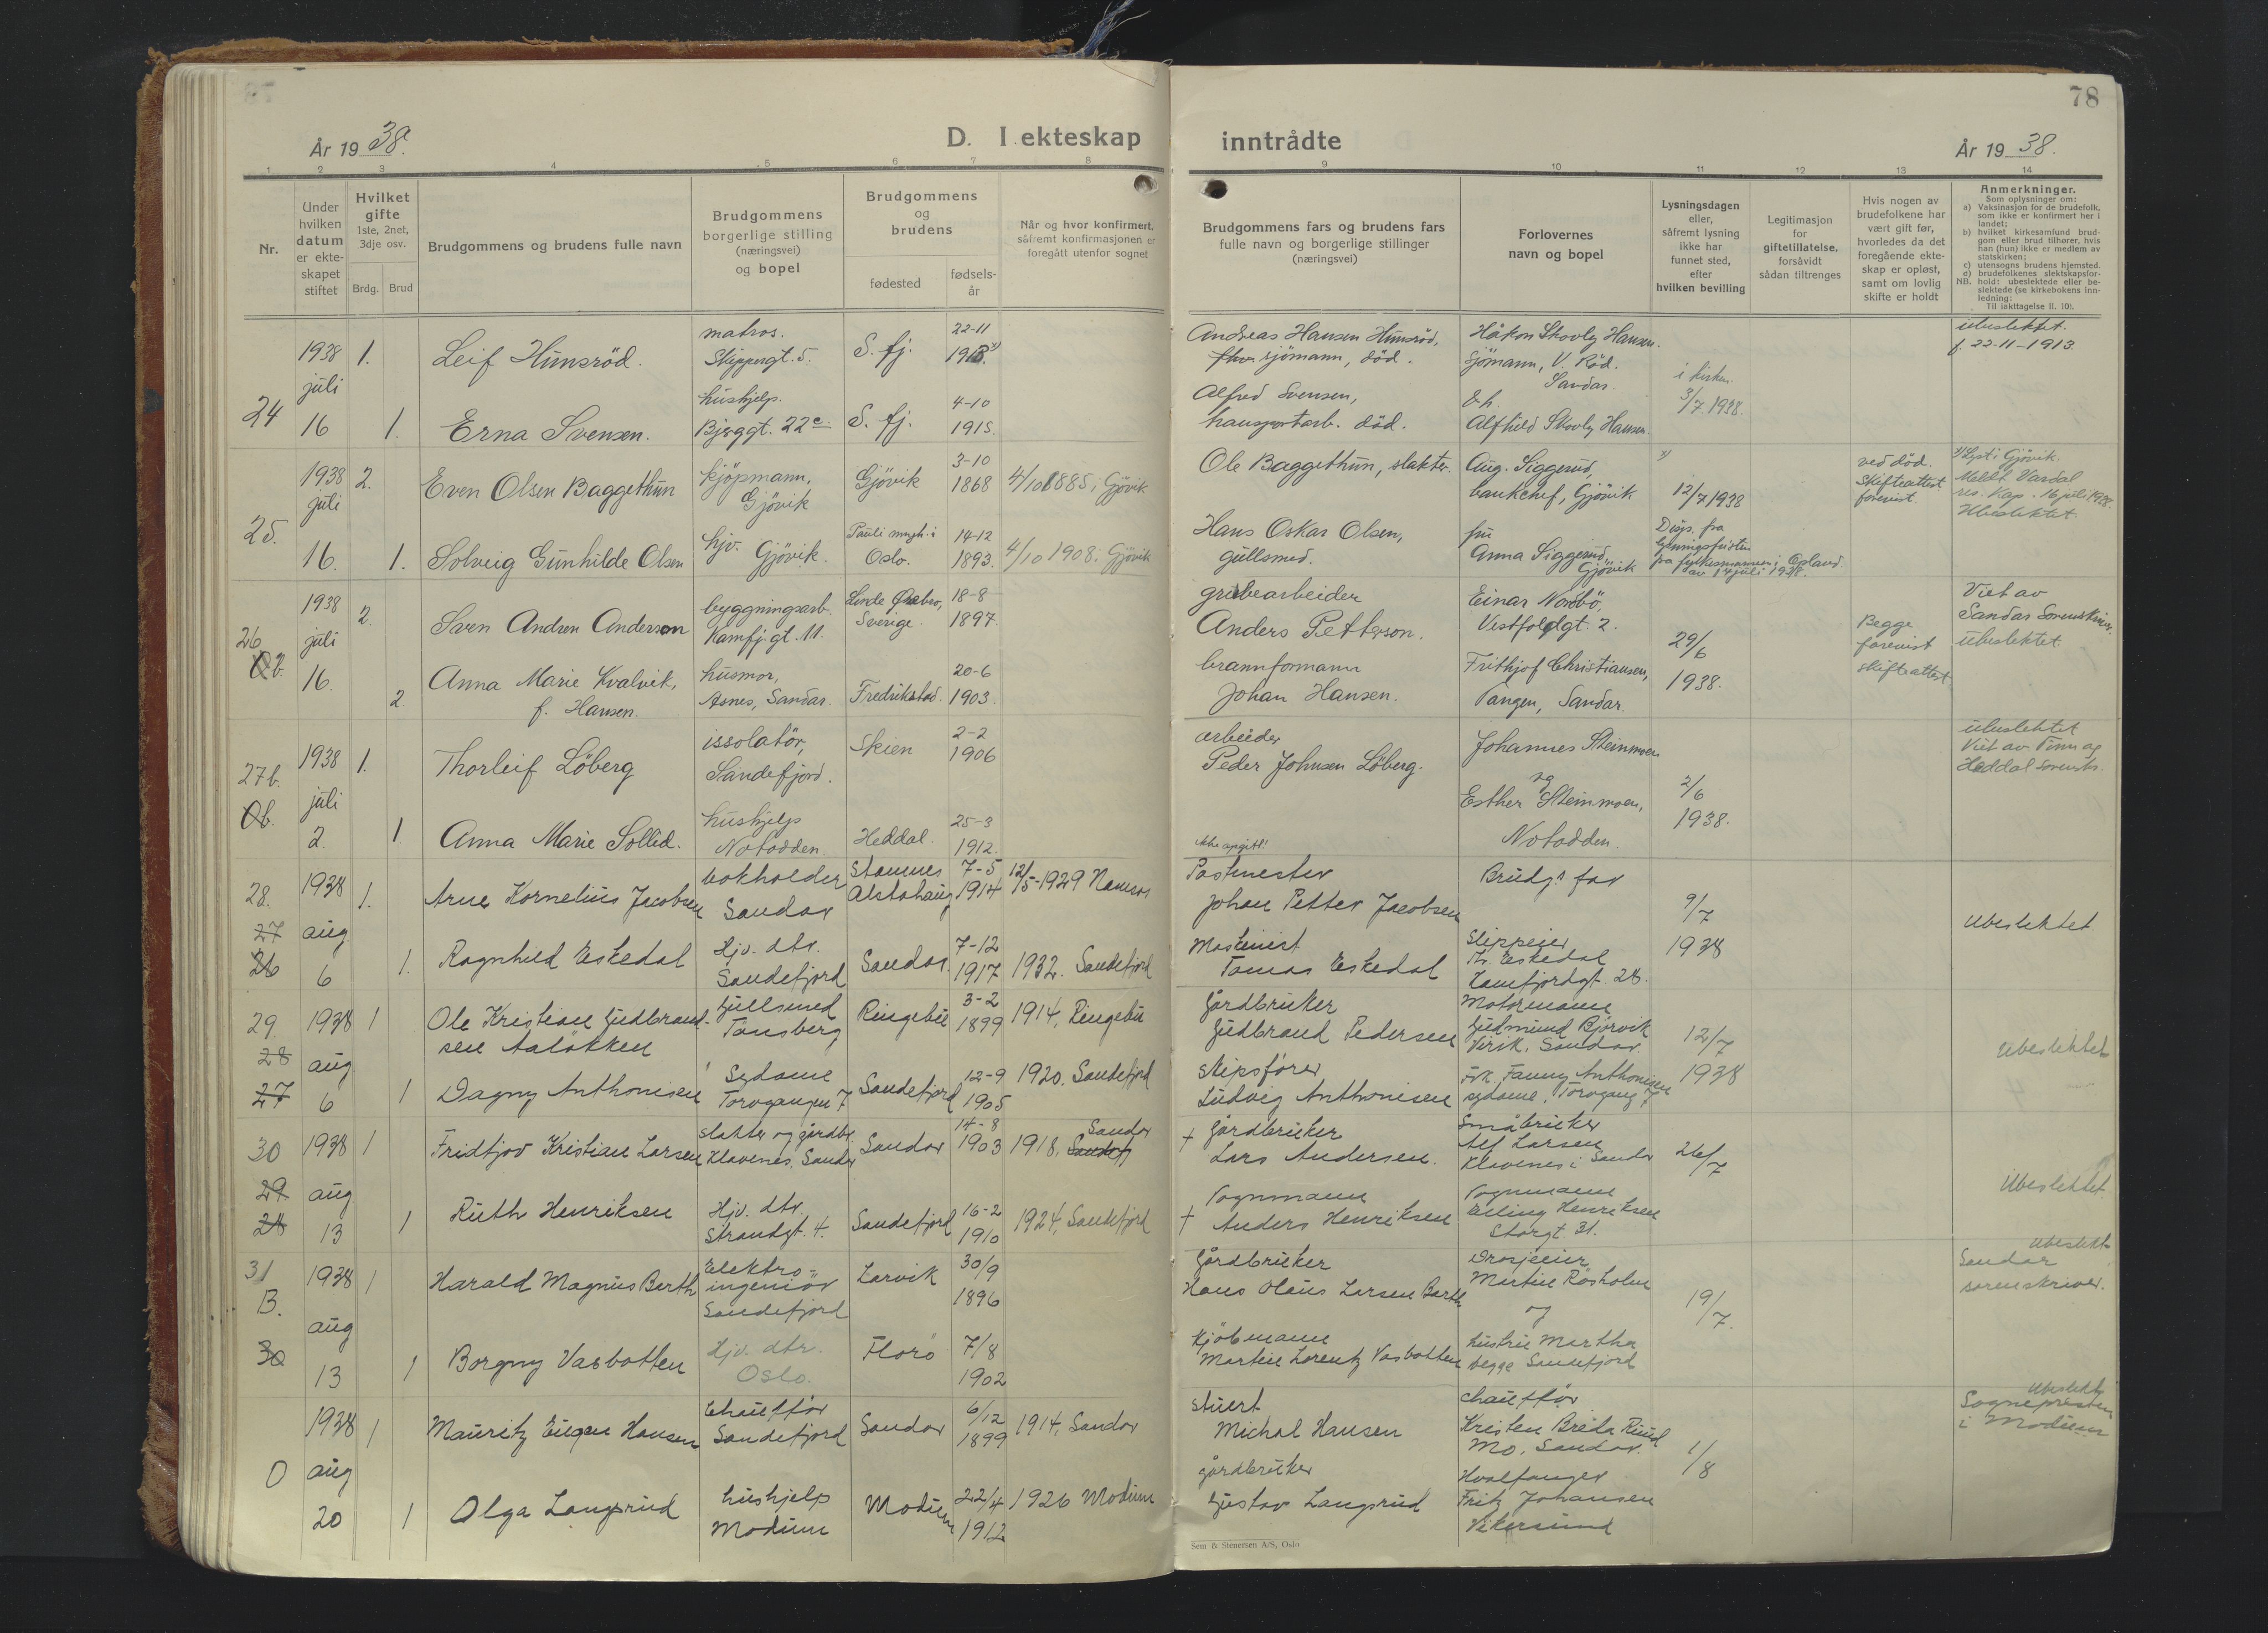 78
År 19 38.
D. I ekteskap inntrådte
År 19 38.
1 2 3 4 5 6 7 8 9 10 11 12 13 14
Nr.
Under
hvilken
datum
er ekte-
skapet
stiftet
Hvilket
gifte
1ste, 2net,
3dje osv.
Brdg. Brud
Brudgommens og brudens fulle navn
Brudgommens
borgerlige stilling
(næringsvei)
og bopel
Brudgommens
og
brudens
fødested
fødsels-
år
Når og hvor konfirmert,
såfremt konfirmasjonen er
foregått utenfor sognet
Brudgommens fars og brudens fars
fulle navn og borgerlige stillinger
(næringsvei)
Forlovernes
navn og bopel
Lysningsdagen
eller,
såfremt lysning
ikke har
funnet sted,
efter
hvilken bevilling
Legitimasjon
for
giftetillatelse,
forsåvidt
sådan tiltrenges
Hvis nogen av
brudefolkene har
vært gift før,
hvorledes da det
foregående ekte-
skap er opløst,
samt om lovlig
skifte er holdt
Anmerkninger.
Som oplysninger om:
a) Vaksinasjon for de brudefolk,
som ikke er konfirmert her i
landet;
b) hvilket kirkesamfund brud-
gom eller brud tilhører, hvis
han (hun) ikke er medlem av
statskirken;
c) utensogns brudens hjemsted.
d) brudefolkenes slektskapsfor-
hold: ubeslektede eller be-
slektede (se kirkebokens inn-
ledning:
NB.
Til iakttagelse II. 10).
24
1938
juli
16
1.
Leif Hunsröd.
matros.
Skippergt. 5.
S. fj.
22-11
1913.
Andreas Hansen Hunsröd,
sjömann, död.
Håkon Skovly Hansen.
sjömann, V. Röd.
Sandar.
i kirken.
3/7 1938.
ubeslektet.
f. 22-11-1913
1.
Erna Svensen.
hushjelp.
Bjeggt. 22c
S. fj.
4-10
1915.
Alfred Svensen,
transportarb. död.
&h.
Alfhild Skovly Hansen.
25.
1938
juli
16.
2.
Even Olsen Baggethun
kjöpmann,
Gjövik
Gjövik
3-10
1868
4/10 1885 i Gjövik
Ole Baggethun, slakter.
Aug. Siggerud,
bankchef, Gjövik
12/7 1938
ved död.
Skifteattest
forevist.
Lyst i Gjövik.
Meldt Vardal
res. kap. 16 juli 1938.
Ubeslektet
1.
Solveig Gunhilde Olsen
hjv. Gjövik.
Pauli mngh. i
Oslo.
14-12
1893.
4/10 1908. Gjövik
Hans Oskar Olsen,
gullsmed.
fru
Anna Siggerud,
Gjövik
Disp. fra
lysningsfristen
fra fylkesmannen i Opland.
av 14 juli 1938.
26
b.
1938
juli
16.
2.
Sven Andren Anderson
bygningsarb.
Kamfj.gt. 11.
Linde Örebro,
Sverige.
18-8
1897.
grubearbeider
Anders Petterson.
Einar Nordbö,
Vestfoldgt. 2.
29/6
1938.
Begge
forevist
skifteattest
Viet av
Sandar Sorenskriver.
ubeslektet.
2.
Anna Marie Kvalvik,
f. Hansen.
husmor,
Asnes, Sandar.
Fredrikstad.
20-6
1903.
brannformann
Johan Hansen.
Frithjof Christiansen,
Tangen, Sandar.
27b.
b.
1938
juli
2.
1.
Thorleif Löberg
issolatör,
Sandefjord.
Skien
2-2
1906
arbeider
Peder Johnsen Löberg.
Johannes Steinmoen
og
Esther Steinmoen,
Notodden.
2/6
1938.
ubeslektet
Viet av Tinn og
Heddal Sorensk.
1
Anna Marie Sollid.
hushjelp
Notodden.
Heddal.
25-3
1912.
ikke opgitt!
28.
27
26
1938
aug.
6
1.
Arne Kornelius Jacobsen
bokholder
Sandar
Stamnes
Alstahaug
7-5
1914
12/5-1929 Namsos
Postmester
Johan Petter Jacobsen
Brudg.s far
9/7
1938
Ubeslektet
1.
Ragnhild Eskedal
Hjv. dtr.
Sandefjord
Sandar.
7-12
1917
1932. Sandefjord
Maskinist
Tomas Eskedal
Skippeier
Th. Eskedal
Kamfjordgt. 28.
29.
28
27
1938
aug
6
1
Ole Kristian Gudbrand-
sen Aalökken
Gullsmed
Tönsberg
Ringebu
3-2
1899
1914, Ringebu
Gårdbruker
Gudbrand Pedersen
Motormann
Gudmund Bjørvik
Virik. Sandar.
12/7
1938
Ubeslektet
1
Dagny Anthonisen
Sydame
Torvgangen 7
Sandefjord
12-9
1905
1920. Sandefjord
Skipsförer
Ludvig Anthonisen
Frk. Fanny Anthonisen
sydame, Torvgang 7
30
29
28
1938
aug
13
1
Fridtjov Kristian Larsen
Slakter og gårdbr.
Klavenes, Sandar
Sandar
14-8
1903
1918. Sandar
+ Gårdbruker
Lars Andersen.
Småbruker
Alf Larsen
Klavenes i Sandar
26/7
Ubeslektet
1
Ruth Henriksen
Hjv. dtr.
Strandgt. 4.
Sandefjord
16-2
1910
1924, Sandefjord
Vognmann
+ Anders Henriksen
Vognmann
Erling Henriksen
Storgt. 31.
31
B.
30
1938
aug
13
1
Harald Magnus Barth
Elektro-
ingeniör
Sandefjord
Larvik
30/9
1896
Gårdbruker
Hans Olaus Larsen Barth
Drosjeeier
Martin Rösholm
og
hustru Martha
begge Sandefjord
19/7.
Ubeslekt.
Sandar
sorenskriver.
1
Borgny Vasbotten
Hjv. dtr.
Oslo.
Florö
7/8
1902
Kjöbmann
Martin Lorentz Vasbotten
0
1938
aug
20
1
Mauritz Eugen Hansen
Chauffør
Sandefjord
Sandar
6/12
1899
1914, Sandar
Stuert
Michal Hansen
chauffør
Kristen Breda Ruud
Mo. Sandar.
1/8
Ubeslekt.
Sognepresten
i Modum
1
Olga Langsrud
hushjelp
Modum
Modum
22/4
1912
1926 Modum
gårdbruker
Gustav Langsrud
Hvalfanger
Fritz Johansen
Vikersund
Sem & Stenersen A/S, Oslo